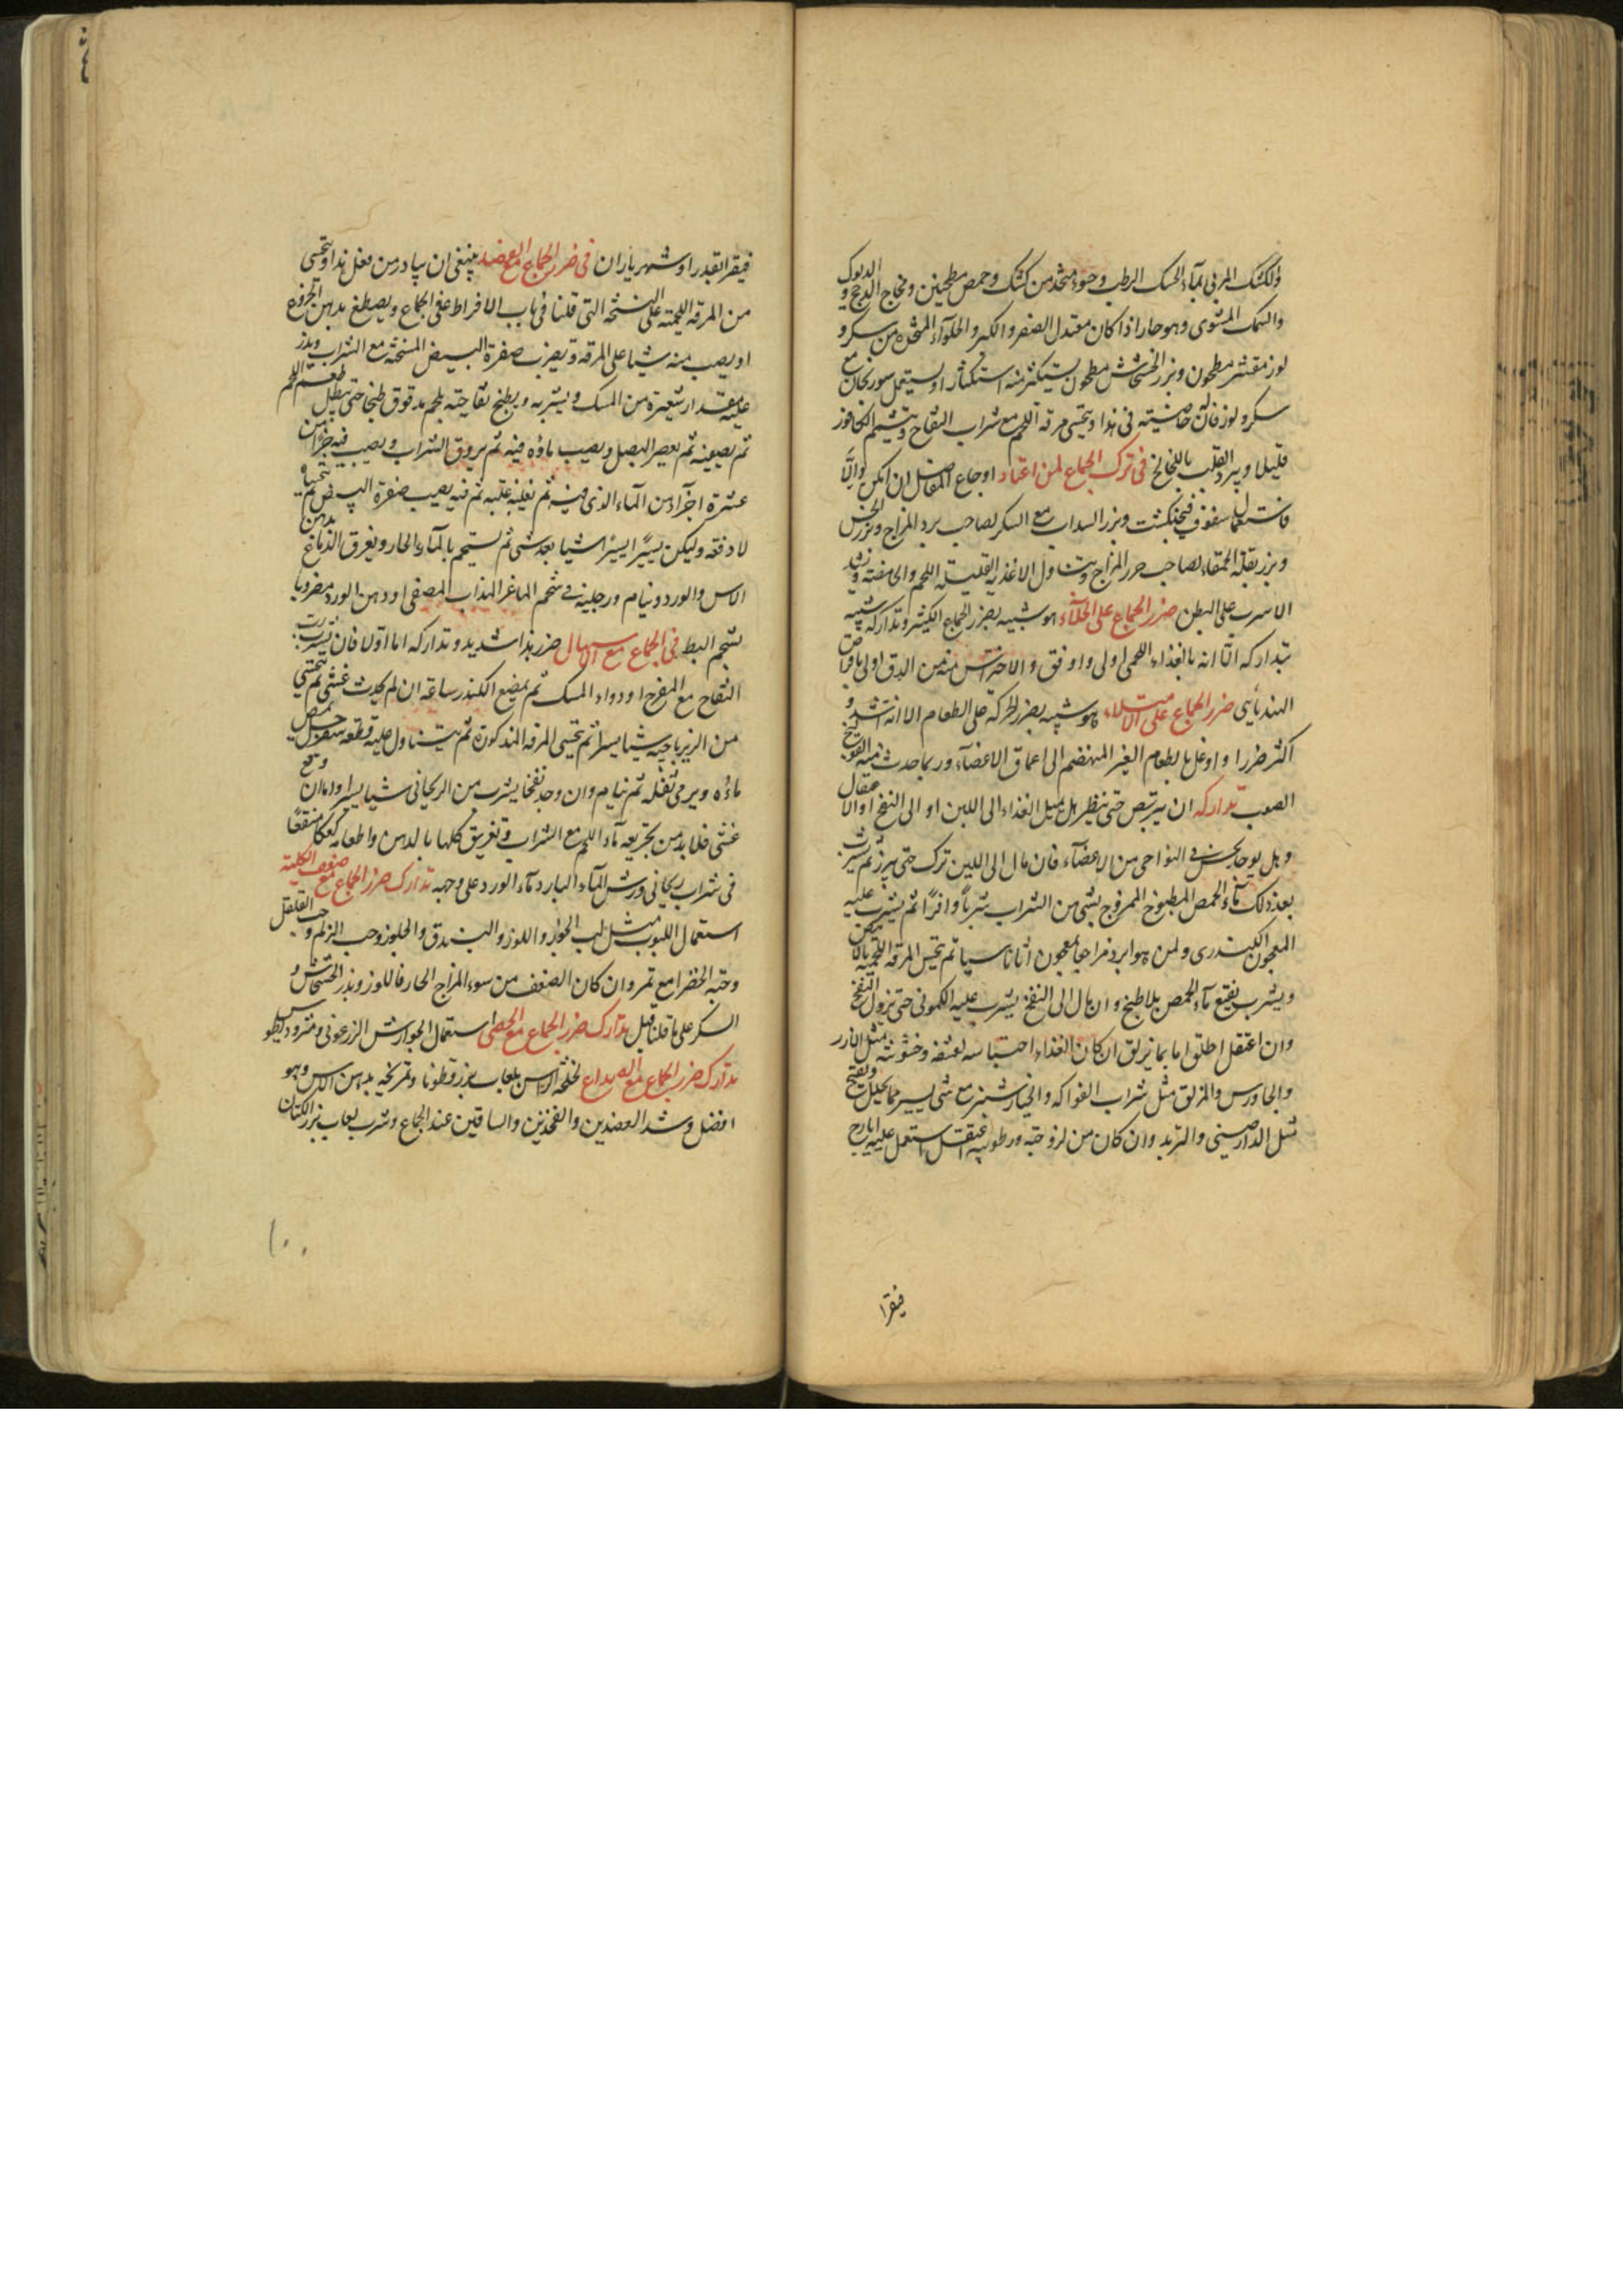 والكشك المربى بماء الحسك الرطب وحسو متخذ من كشك وحمص مطحنين ومخاخ الدجج والديوك
والسمك المشوى وهو حار اذا كان معتدل الصغر والكبر والحلواء المتخذة من سكر و
لوز مقشر مطحون وبزر الخشخاش مطحون يستكثر منه استكثارا ويستعمل سورنجان مع
سكر ولوز فان له خاصية فى هذا ويتحسى مرقة اللحم مع شراب التفاح ويشم الكافور
قليلا ويبرد القلب باللخالخ فى ترك الجماع لمن اعتاد اوجاع المفاصل ان امكن والا
فاستعمال سفوف فنجنكشت وبزر السداب مع السكر لصاحب برد المزاج وبزر الخس
وبزر بقلة الحمقاء لصاحب حر المزاج ويتناول الاغذية القليلة اللحم والحامضة ويشد
الاسرب على البطن ضرر الجماع على الخلاء هو شبيه بضرر الجماع الكثير وتداركه شبيه
بتداركه الا انه بالغذاء اللحمى اولى واوفق والاحتراس منه من الدق اولى
ضرر الجماع على الامتلاء هو شبيه بضرر الحركة على الطعام الا انه اشد و
اكثر ضررا واوغل بالطعام الغير المنهضم الى اعماق الاعضاء وربما حدث منه القولنج
الصعب تداركه ان يتربص حتى ينظر هل يميل الغذاء الى اللين او الى النفخ او الاعتقال
وهل يوجد نخس فى النواحى من الاعضاء فان مال الى اللين ترك حتى يبرز ثم يشرب
بعد ذلك ماء الحمص المطبوخ الممزوج بشى من الشراب شربا وافرا ثم يشرب عليه
المعجون الكندرى ولمن هو ابرد مزاجا معجون اثاناسيا ثم يتحسى المرقة اللحمية
ويشرب نقيع ماء الحمص بلا طبخ وان مال الى النفخ يشرب عليه الكمونى حتى يزول النفخ
وان اعتقل اطلق اما بما يزلق ان كان الغذاء احتباسه لعنفه وخشونته مثل الارز
والجاورس والمزلق مثل شراب الفواكه والخيارشنبر مع شى يسير مما يحلل ويفتح
مثل الدارصينى والتربد وان كان من لزوجة ورطوبة اعتقل استعمل عليه ايارج
فيقرا
فيقرا بقدر او شهرياران فى ضرر الجماع مع الفصد ينبغى ان يبادر من فعل هذا ويتحسى
من المرقة اللحمية على النسخة التى قلنا فى باب الافراط فى الجماع ويصطبغ بدهن الجوز
او يصب منه شيا على المرقة ويضرب صفرة البيض المسخنة مع الشراب ويذر
عليه مقدار شعيرة من المسك ويشربه ويطبخ تفاحية بلحم مدقوق طبخا حتى يبطل طعم اللحم
ثم يصفيه ثم يعصر البصل ويصب ماؤه فيه ثم يروق الشراب ويصب فيه جزا من
عشرة اجزاء من الماء الذى فيه ثم يغليه غلية ثم فيه يصب صفرة البيض ثم يتحساه
لا دفعة وليكن يسيرا يسيرا شيا بعد شى ثم يستحم بالماء الحار ويغرق الدماغ بدهن
الاس والورد وينام ورجليه فى شحم الماعز المذاب المصفى او دهن الورد مضروبا
بشحم البط فى الجماع مع الاسهال ضرر هذا شديد وتداركه اما اولا فان يشرب رب
التفاح مع المفرح او دواء المسك ثم يمضغ الكندر ساعة ان لم يحدث غشى ثم يتحسى
من الزيرباجية شيا يسيرا ثم يتحسى المرقة المذكورة ثم يتناول عليه قطعة سفرجل يمص
ماؤه ويرمى ثفله ثم ينام وان وجد نفخا يشرب من الريحانى شيا يسيرا واما ان وقع
غشى فلا بد من تجريعه ماء اللحم مع الشراب وتغريق كلها بالدهن واطعامه كعكا منقعا
فى شراب ريحانى ورش الماء البارد وماء الورد على وجهه تدارك ضرر الجماع مع ضعف الكلية
استعمال اللبوب مثل لب الجوز واللوز والبندق والجلوز وحب الزلم وحب القلقل
وحبة الخضرا مع تمر وان كان الضعف من سوء المزاج الحار فاللوز وبذر الخشخاش و
السكر على ما قلنا قبل تدارك ضرر الجماع مع الحصى استعمال الجوارش الزرعونى
تدارك ضرر الجماع مع الصداع لخلخة الراس بلعاب بزر قطونا وتمريخه بدهن الاس وهو
افضل وشد العضدين والفخذين والساقين عند الجماع وشرب لعاب بزر الكتان
١٠٠